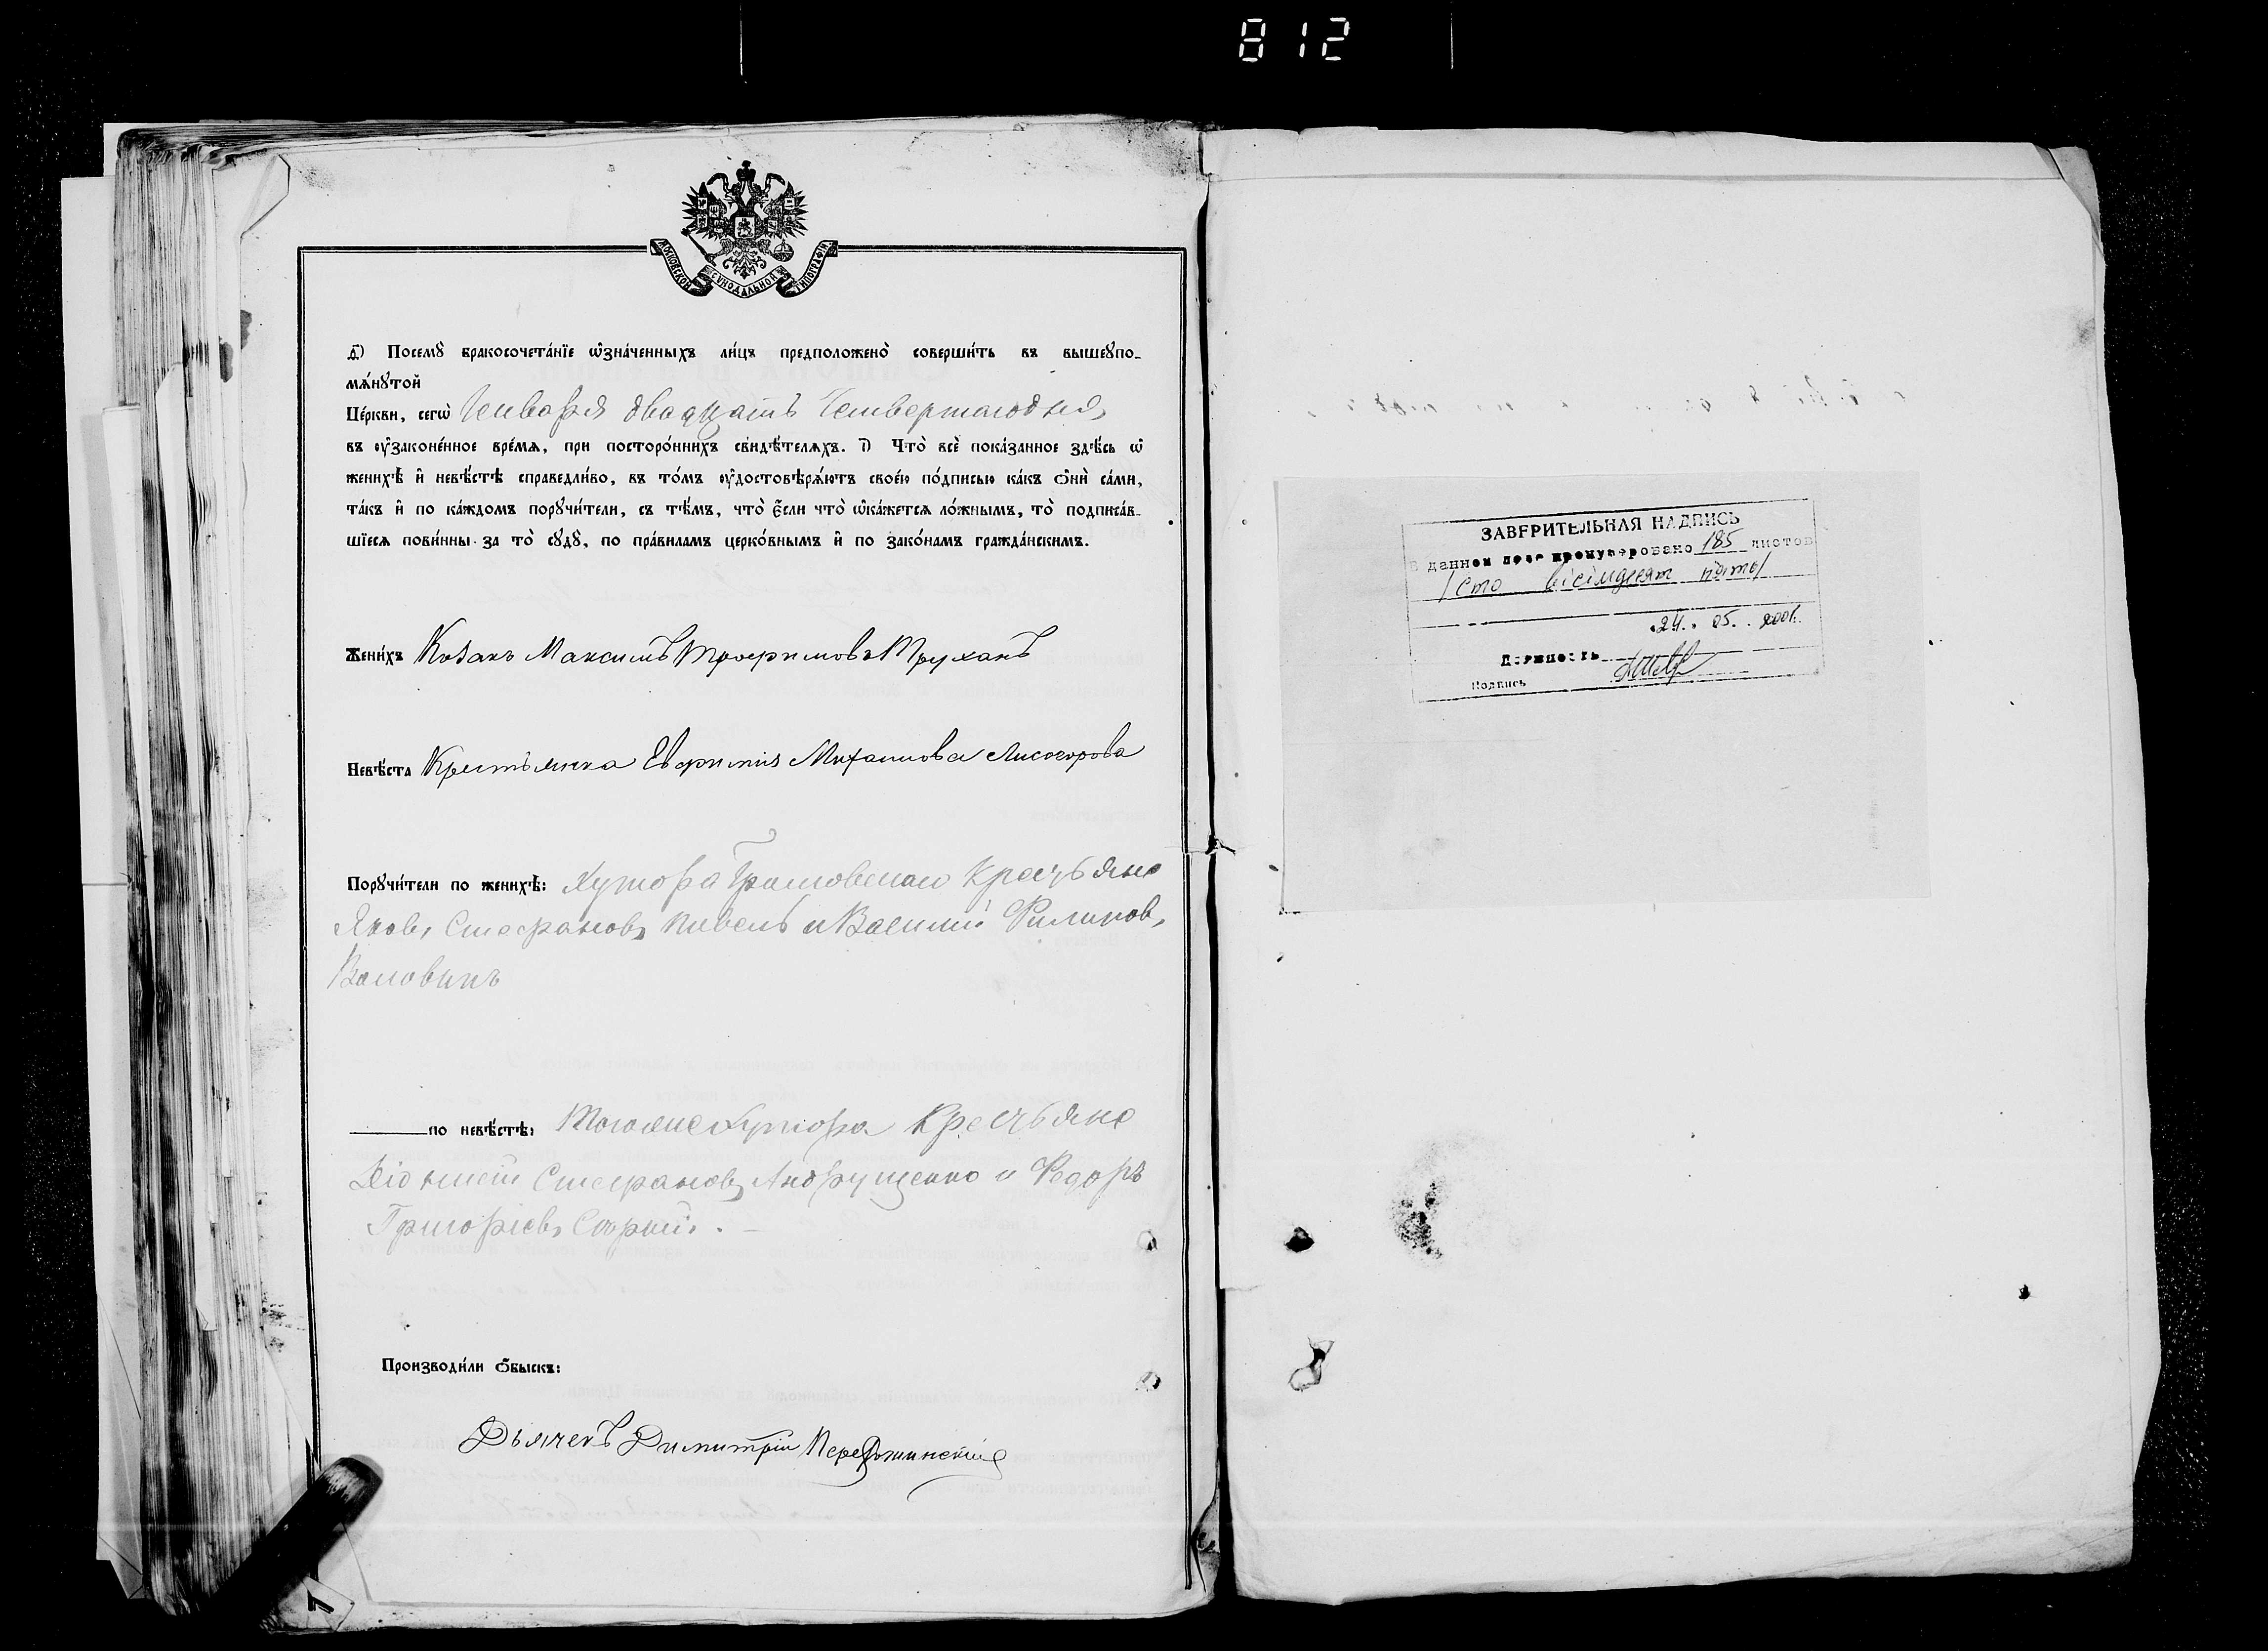 812
МОСКОВСКОЙ СѴНОДАЛЬНОЙ ТИПОГРАФІИ
ѕ҃) Посемꙋ̀ бракосочета́нїе ѡ҆зна́ченныхъ ли́цъ предположено̀ соверши́ть въ вышеꙋпо-
мѧ́нꙋтой
Це́ркви, сегѡ̀ Генваря двадцать четвертаго дня,
въ ᲂу҆законе́нное вре́мѧ, при посторо́ннихъ свидѣ́телѧхъ. з҃) Что̀ всѐ пока́занное здѣ́сь ѡ҆
женихѣ̀ и҆ невѣ́стѣ справедли́во, въ то́мъ ᲂу҆достовѣрѧ́ютъ свое́ю по́дписью ка́къ ѻ҆нѝ са́ми,
та́къ и҆ по ка́ждомъ порꙋчи́тели, съ тѣ́мъ, что̀ є҆́сли что̀ ѡ҆ка́жетсѧ ло́жнымъ, то̀ подписа́в-
шїесѧ пови́нны за то̀ сꙋдꙋ̀, по пра́виламъ церко́внымъ и҆ по зако́намъ гражда́нскимъ.
Жени́хъ Козакъ Максимъ Трофимовъ Труханъ
Невѣ́ста Крестьянка Евфимія Михаилова Лисогорова
Порꙋчи́тели по женихѣ̀: Хутора Крестьяне
Яковъ Стефановъ и Василій Филиповъ
Воловикъ
по невѣ́стѣ: Тогоже Хутора Крестьяне
Стефановъ Андрущенко и Федоръ
Григоріевъ
Производи́ли ѻ҆́быскъ:
Дьячекъ Димитрій
ЗАВЕРИТЕЛЬНАЯ НАДПИСЬ
В данном деле пронумеровано 185 листов
/сто вісімдесят п'ять/
24. 05. 2001.
Должность
Подпись